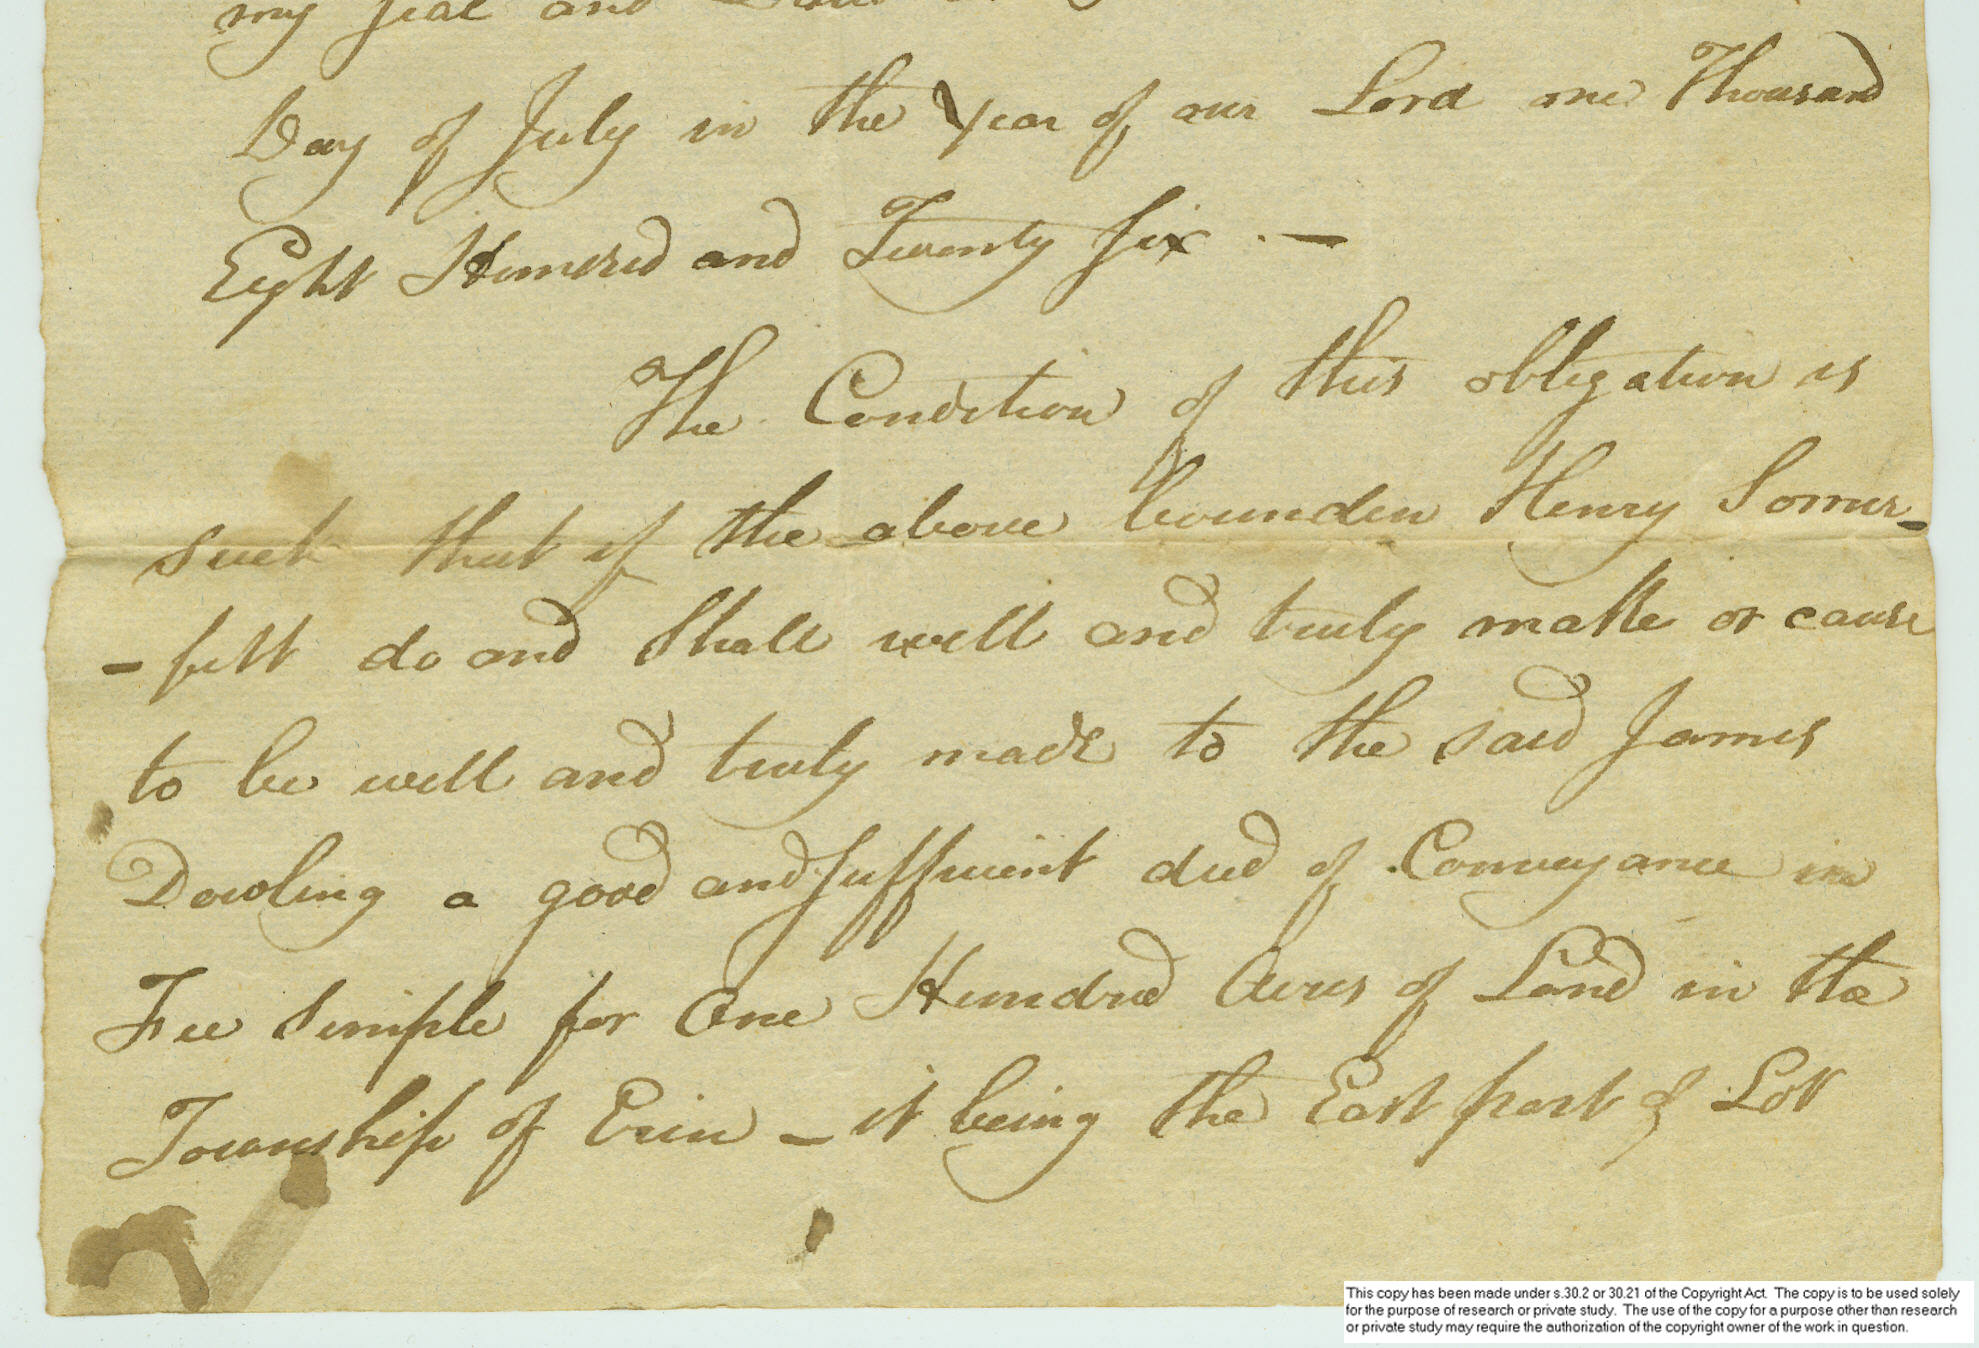 my seal and
Day of July in the Year of our Lord one Thousand
Eight Hundred and Twenty six . —
The Condition of this obligation is
such that if the above bounden Henry Somer-
-felt do and Shall well and truly make or cause
to be well and truly made to the said James
Dowling a good and Suffucient deed of Conveyance in
Fee Simple for One Hundred Acres of Land in the
Township of Erin – it being the East part of Lot
This copy has been made under s.30.2 or 30.21 of the Copyright Act. The copy is to be used solely
for the purpose of research or private study. The use of the copy for a purpose other than research
or private study may require the authorization of the copyright owner of the work in question.